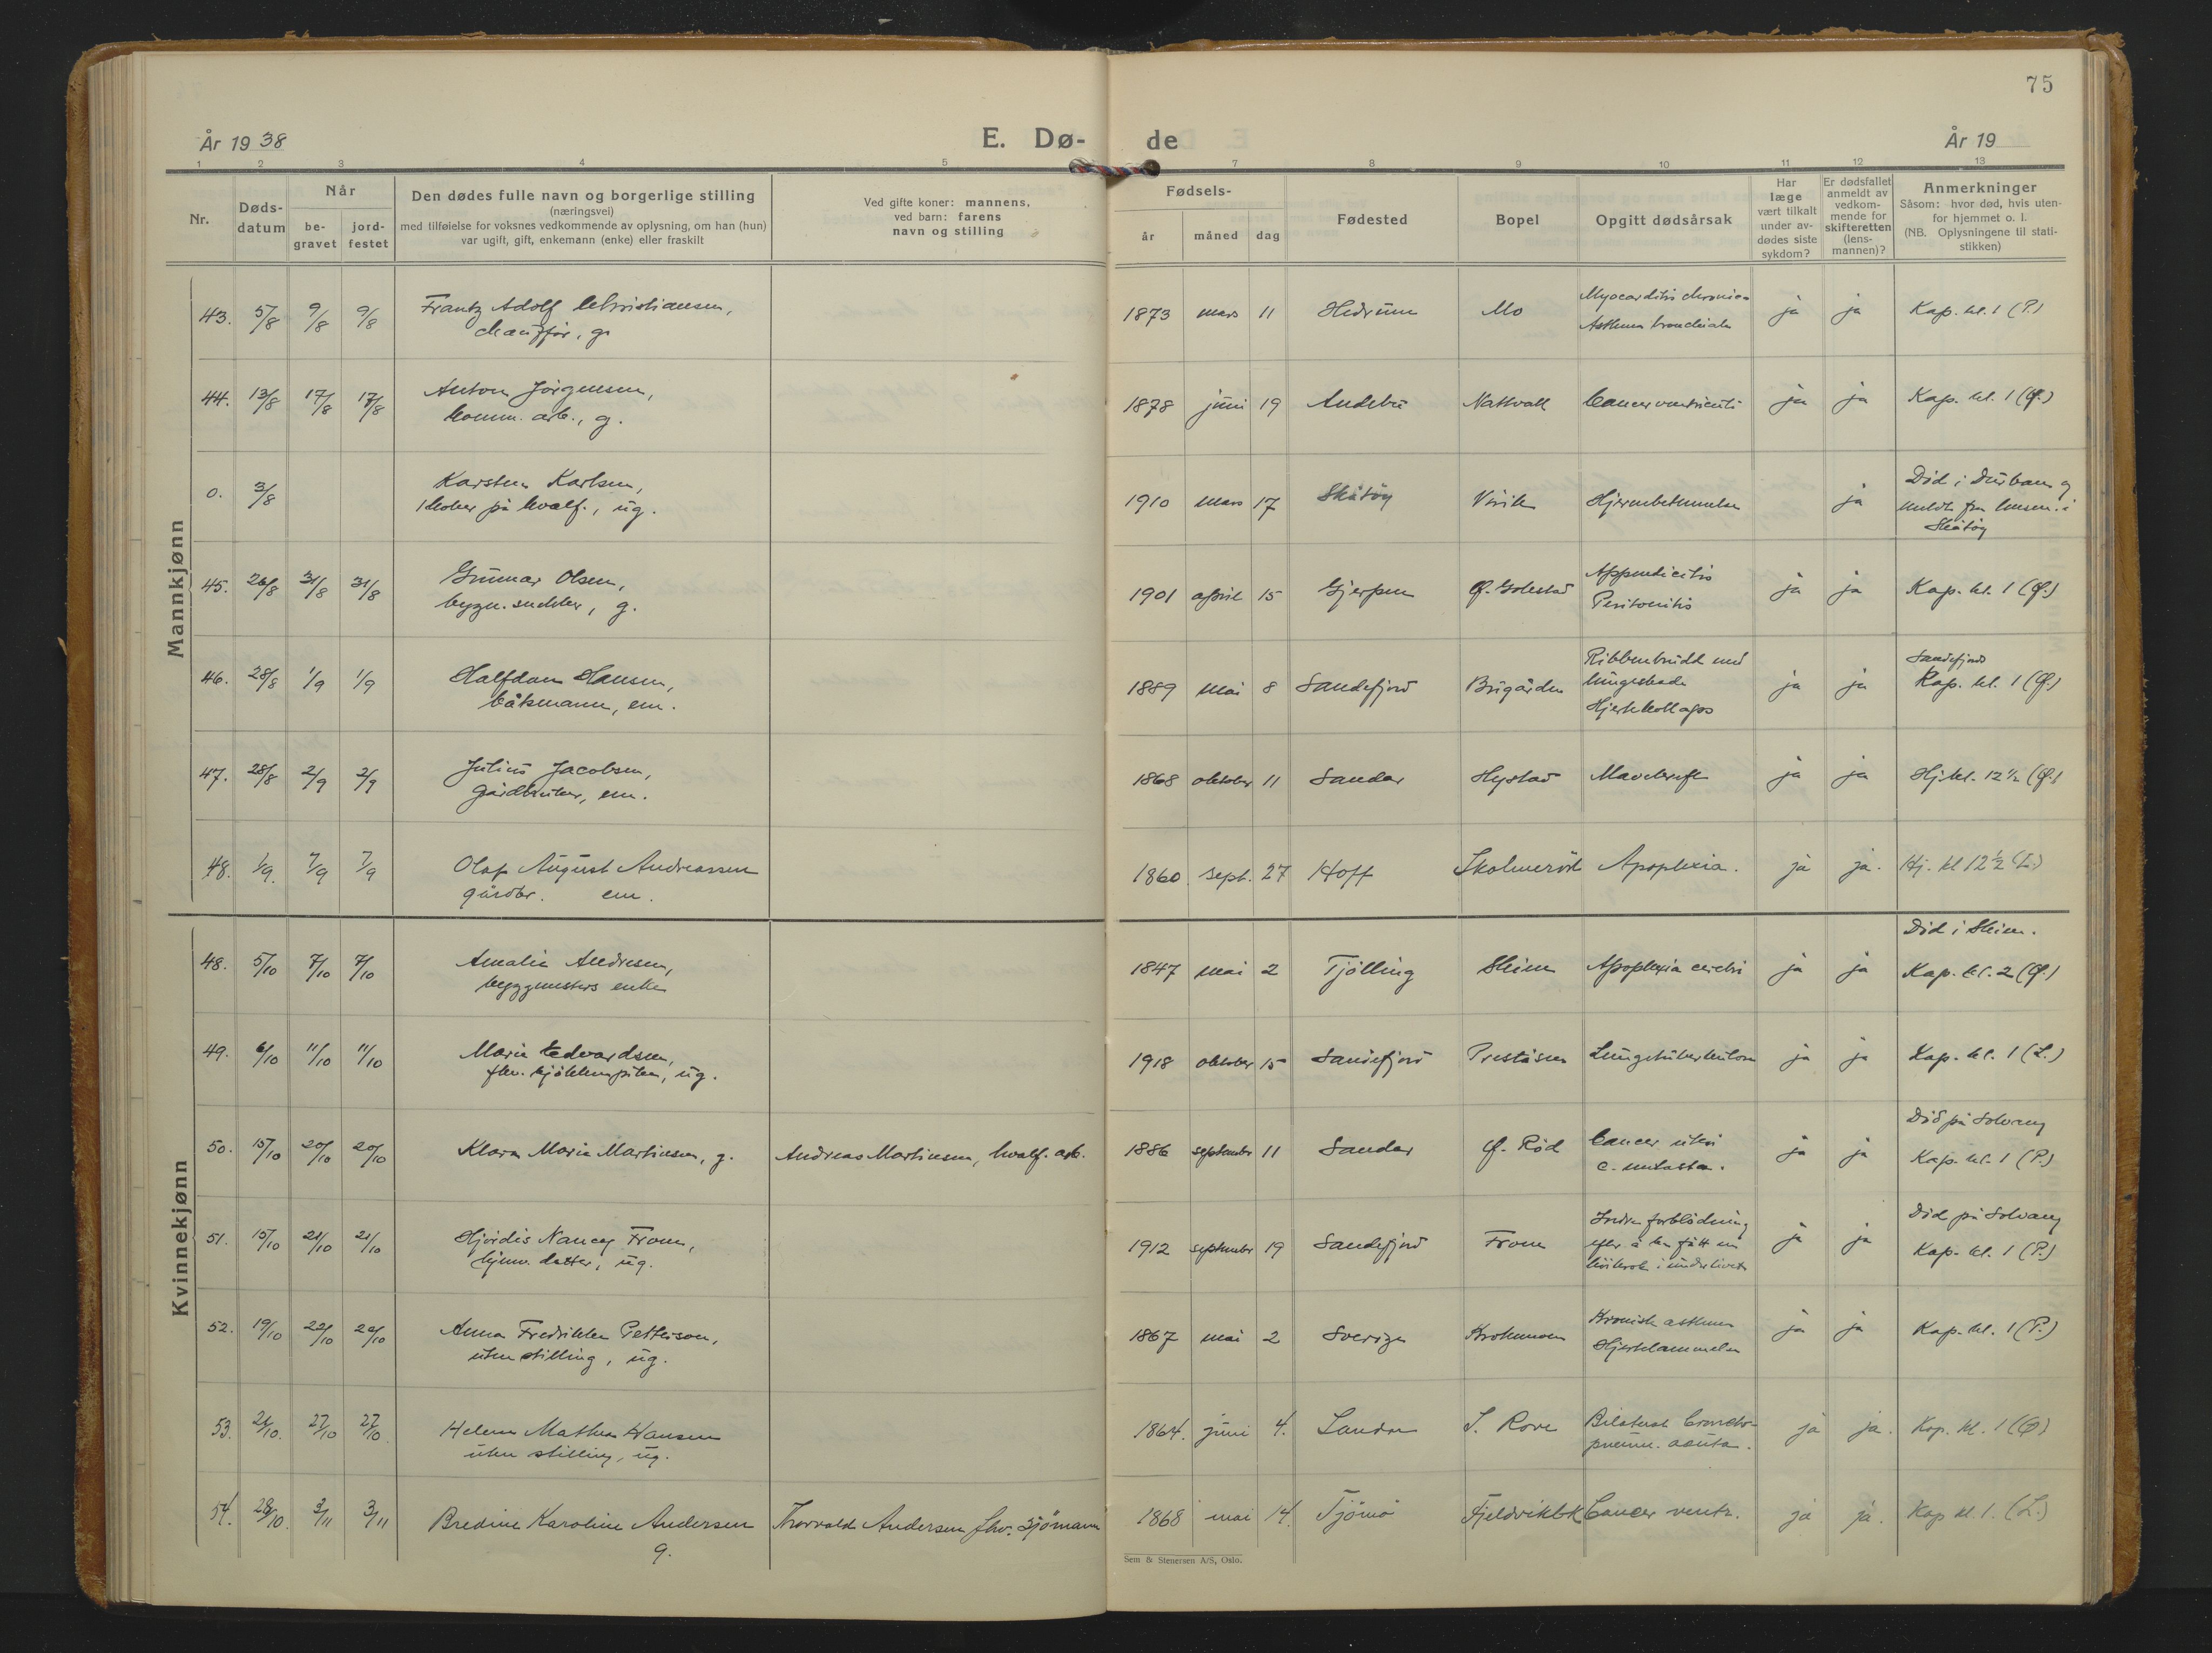 75
År 1938
E. Dø-
de
År 19
1 2 3 4 5 7 8 9 10 11 12 13
Nr.
Døds-
datum
Når
be-
gravet
jord-
festet
Den dødes fulle navn og borgerlige stilling
(næringsvei)
med tilføielse for voksnes vedkommende av oplysning, om han (hun)
var ugift, gift, enkemann (enke) eller fraskilt
Ved gifte koner: mannens,
ved barn: farens
navn og stilling
Fødsels-
år måned dag
Fødested
Bopel
Opgitt dødsårsak
Har
læge
vært tilkalt
under av-
dødes siste
sykdom?
Er dødsfallet
anmeldt av
vedkom-
mende for
skifteretten
(lens-
mannen)?
Anmerkninger
Såsom: hvor død, hvis uten-
for hjemmet o. l.
(NB. Oplysningene til stati-
stikken)
Mannkjønn
43. 5/8 9/8 9/8 Frantz Adolf Christiansen,
chauffør, g.
1873 mars 11 Hedrum Mo Myocarditis chronica
Asthma bronchiale
ja ja Kap. kl. 1 (P.)
44. 13/8 17/8 17/8 Anton Jørgensen,
komm. arb., g.
1878 juni 19 Andebu Nattvall Cancer ventriculi ja ja Kap. kl. 1 (Ø.)
0. 3/8 Karsten Karlsen,
kokker på hvalf., ug.
1910 mars 17 Skåtøy Virik Hjernebetennelse ja Død i Durban og
meldt fra lensm. i
Skåtøy
45. 26/8 31/8 31/8 Gunnar Olsen,
bygn. snekker, g.
1901 april 15 Gjerpen Ø. Gokestad Appendicitis
Peritonitis
ja ja Kap. kl. 1 (Ø.)
46. 28/8 1/9 1/9 Halfdan Hansen,
båtsmann, em.
1889 mai 8 Sandefjord Bugården Ribbenbrudd med
lungeskade
Hjertekollaps
ja ja Sandefjords
Kap. kl. 1 (Ø.)
47. 28/8 2/9 2/9 Julius Jacobsen,
gårdbruker, em.
1868 oktober 11 Sandar Hystad Mavekreft ja ja Hj. kl. 12½ (Ø.)
48. 1/9. 7/9 7/9 Olaf August Andreassen
gårdbr. em.
1860. sept. 27 Hoff Skolmerød Apoplexia. ja ja. Hj. kl 12½ (L.)
Kvinnekjønn
48. 5/10 7/10 7/10 Amalie Andresen,
byggmesters enke
1847 mai 2 Tjølling Skien Apoplexia cerebri ja ja Død i Skien.
Kap. kl. 2 (Ø.)
49. 6/10 11/10 11/10 Marie Edvardsen,
fhv. kjøkkenpike, ug.
1918 oktober 15 Sandefjord Preståsen Lungetuberkulose ja ja Kap. kl. 1 (L.)
50. 15/10 20/10 20/10 Klara Marie Martinsen, g. Andreas Martinsen, hvalf. arb.
1886 september 11 Sandar Ø. Rød Cancer uteri
c. metasta.
ja ja Død på Solvang
Kap. kl. 1 (P.)
51. 15/10 21/10 21/10 Hjørdis Nancy From,
hjemv. datter, ug.
1912 september 19 Sandefjord From Indre forblødning
efter å ha fått en
i underlivet
ja ja Død på Solvang
Kap. kl. 1 (P.)
52. 19/10 22/10 22/10 Anna Fredrikke Petterson,
uten stilling, ug.
1867 mai 2 Sverige Krokemoen Kronisk asthma
Hjertelammelse
ja ja Kap. kl. 1 (P.)
53. 21/10. 27/10 27/10 Helene Mathea Hansen
uten stilling, ug.
1864. juni 4. Sandar S. Rove Bilateral broncho-
pneum. acuta.
ja ja. Kap. kl. 1 (Ø)
54. 28/10. 3/11 3/11 Bredine Karoline Andersen Thorvald Andersen fhv. Sjømann
g.
1868 mai 14. Tjømø Fjeldvikbk Cancer ventr. ja ja. Kap kl. 1. (L.)
Sem & Stenersen A/S, Oslo.